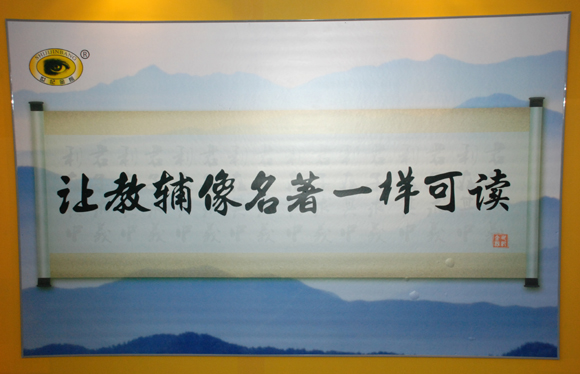 ®
让教辅像名著一样可读